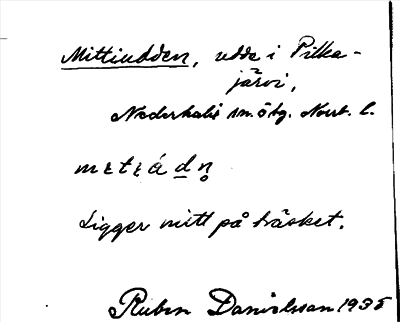 Mittiudden, udde i Pilka-
järvi,
Nederkalix sn. ö bg. Norrb. l.
Ligger mitt på träsket.
Ruben Danielsson 1935